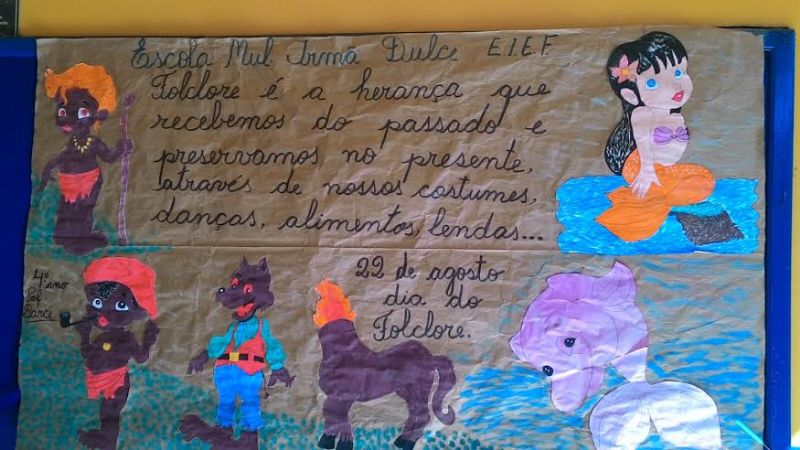 Escola Mul. Irmã Dulce E.I.E.F.
Folclore é a herança que
recebemos do passado e
preservamos no presente,
através de nossos costumes,
danças, alimentos, lendas...
4º ano
Prof
Darci
22 de agosto
dia do
Folclore.